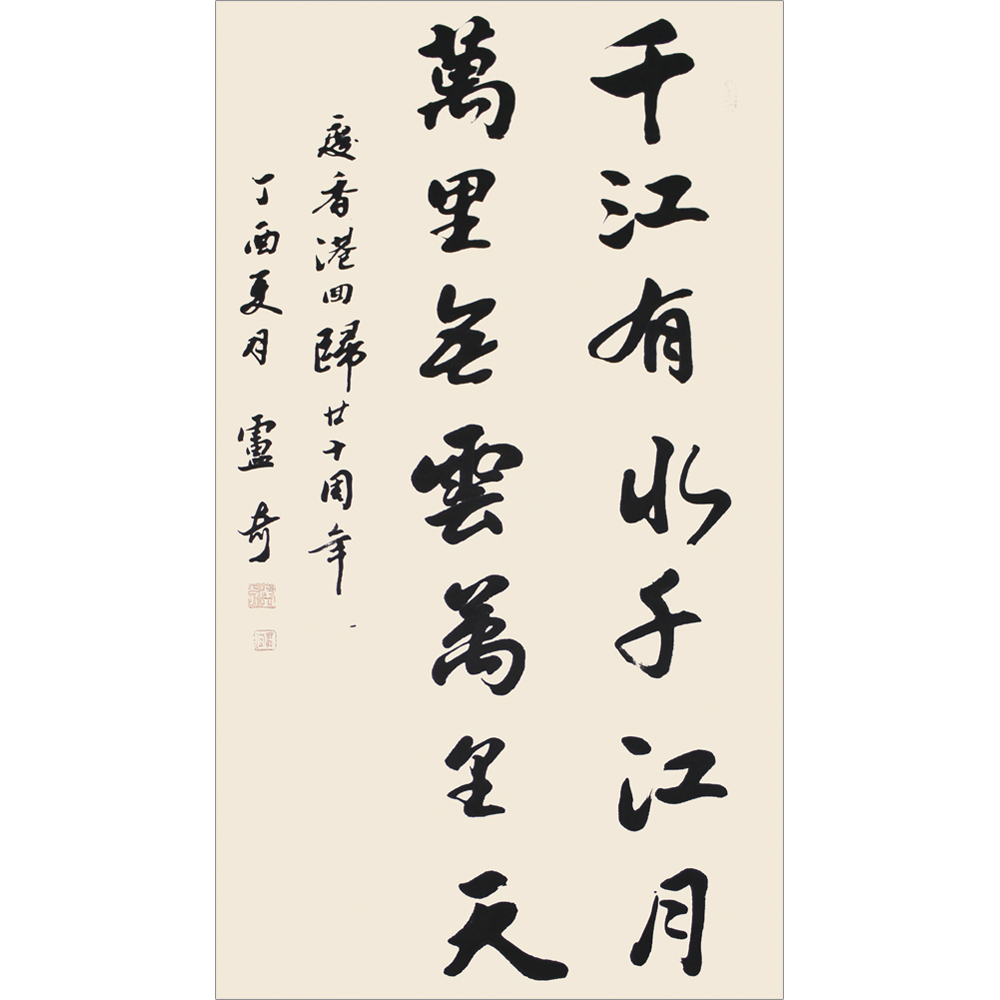 千江有水千江月
萬里無雲萬里天
慶香港回歸廿十周年
丁酉夏月 盧奇